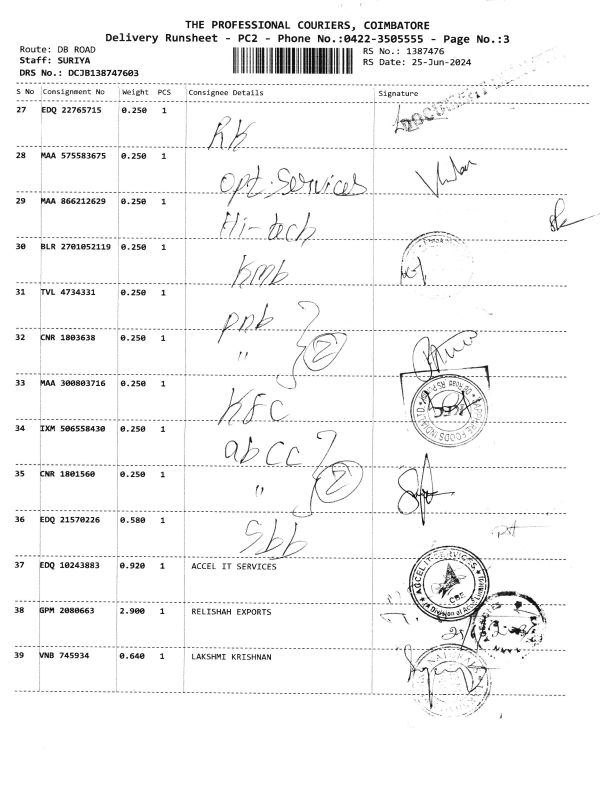 THE PROFESSIONAL COURIERS, COIMBATORE
Delivery Runsheet - PC2 - Phone No.:0422-3505555 - Page No.:3
Route: DB ROAD RS No.: 1387476
Staff: SURIYA RS Date: 25-Jun-2024
DRS No.: DCJB138747603
S No Consignment No Weight PCS Consignee Details Signature
27 EDQ 22765715 0.250 1 RK
28 MAA 575583675 0.250 1 opt. services
29 MAA 866212629 0.250 1 Hi-tech
30 BLR 2701052119 0.250 1 kmb
31 TVL 4734331 0.250 1 pnb
32 CNR 1803638 0.250 1 " 2
33 MAA 300803716 0.250 1 KFC
34 IXM 506558430 0.250 1 abcc
35 CNR 1801560 0.250 1 " 2
36 EDQ 21570226 0.580 1 Sbb
37 EDQ 10243883 0.920 1 ACCEL IT SERVICES
ACCEL IT SERVICES
CBE
38 GPM 2080663 2.900 1 RELISHAH EXPORTS
39 VNB 745934 0.640 1 LAKSHMI KRISHNAN